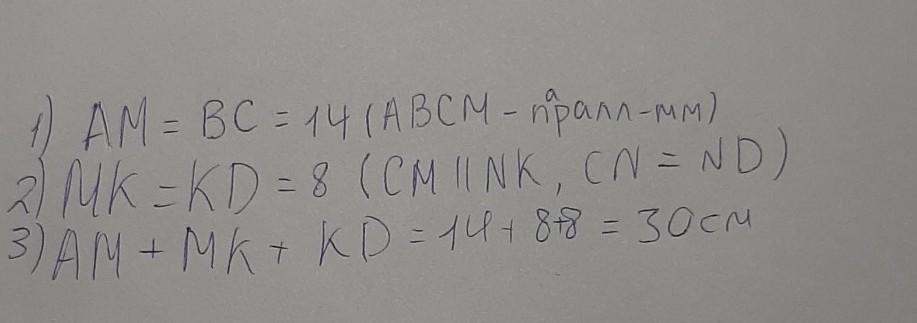 1) AM = BC = 14 (ABCM - паралл-мм)
2) MK = KD = 8 (CM || NK, CN = ND)
3) AM + MK + KD = 14 + 8+8 = 30 см